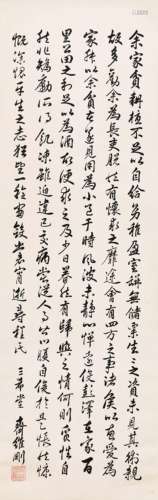 余家貧耕植不足以自給幼稚盈室缾無儲粟生之資未見其術親
故多勸余為長吏脫然有懷求之靡途會有四方之事諸侯以惠愛為
家叔以余貧苦用為小邑于時風波未靜心憚遠役彭澤去家百
里公田之利足以為酒故便求之及少日眷然有歸與之情何則質性自
然非矯勵所得飢凍雖切違己交病嘗從人事皆口腹自役於是悵然慷
慨深愧平生之志猶望一稔當斂裳宵逝尋程氏 三希堂 維剛